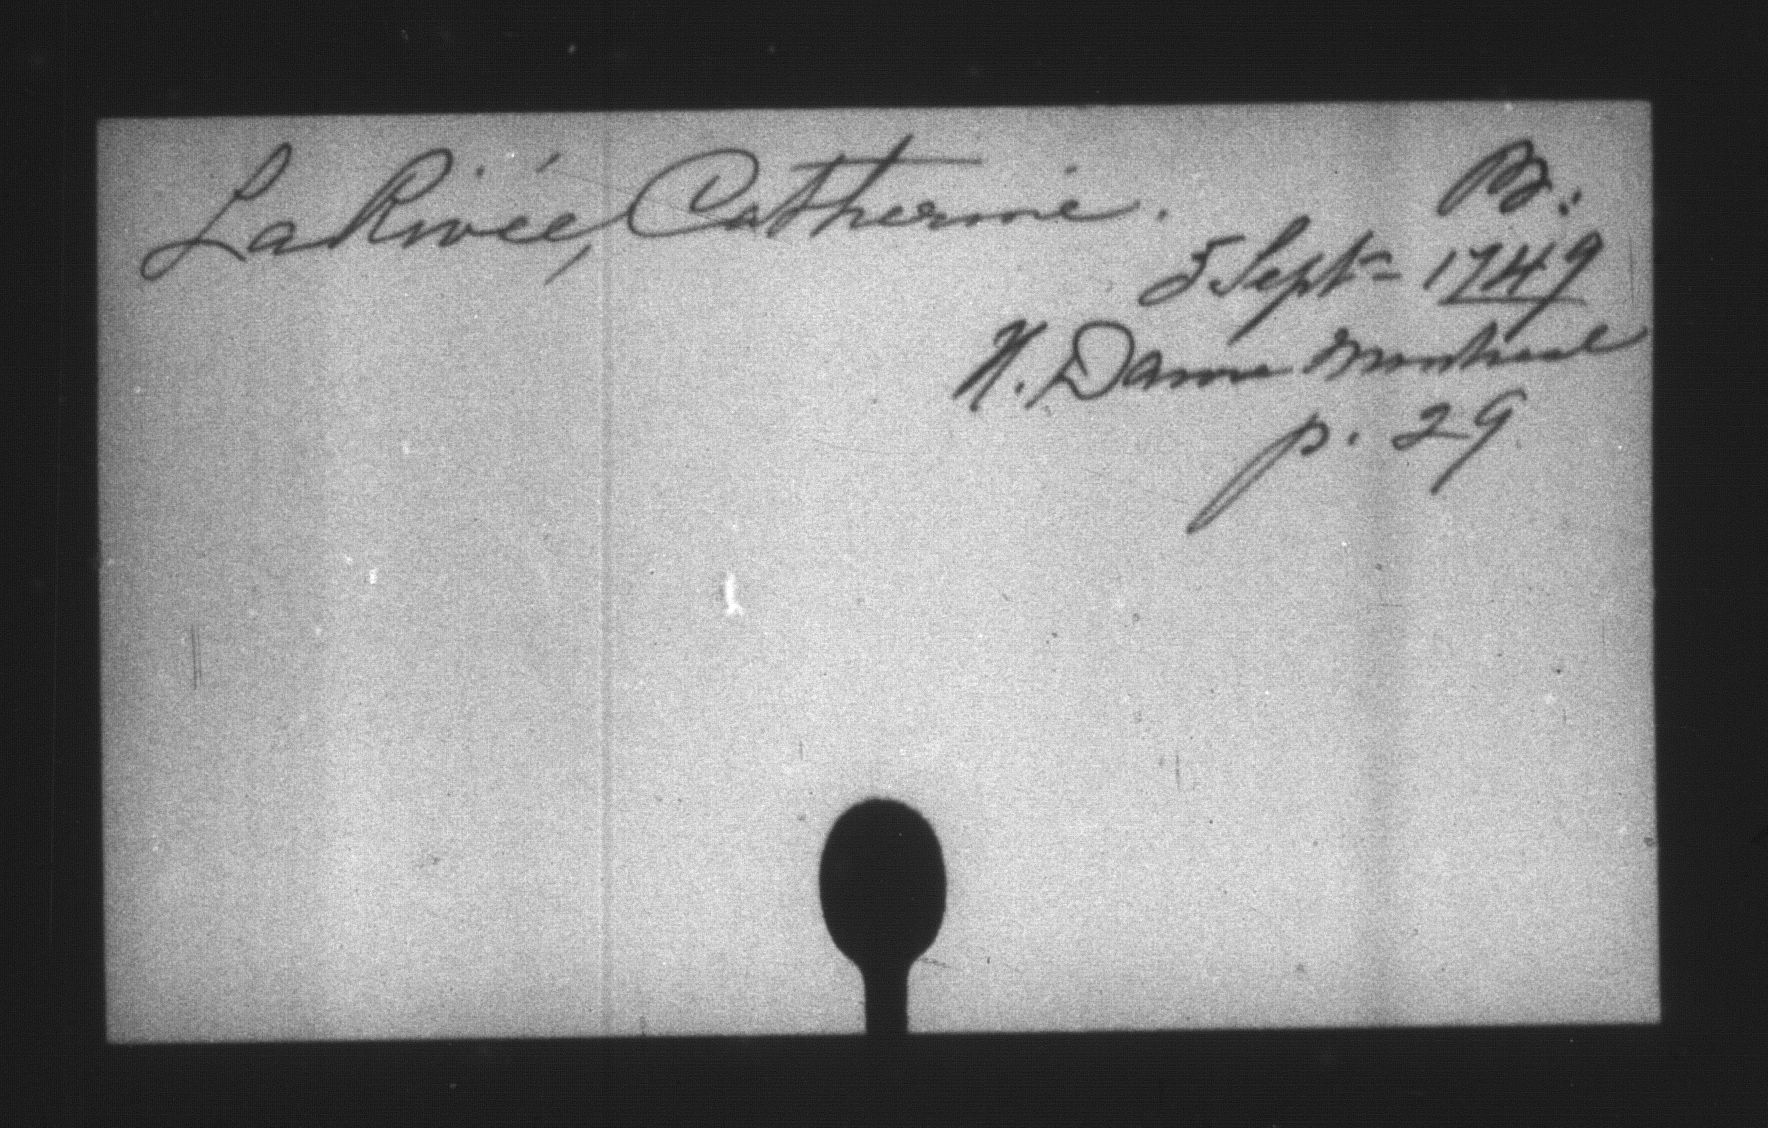 LaRivée, Catherine.
B.
5 Sept- 1749
N. Dame Montreal
p. 29